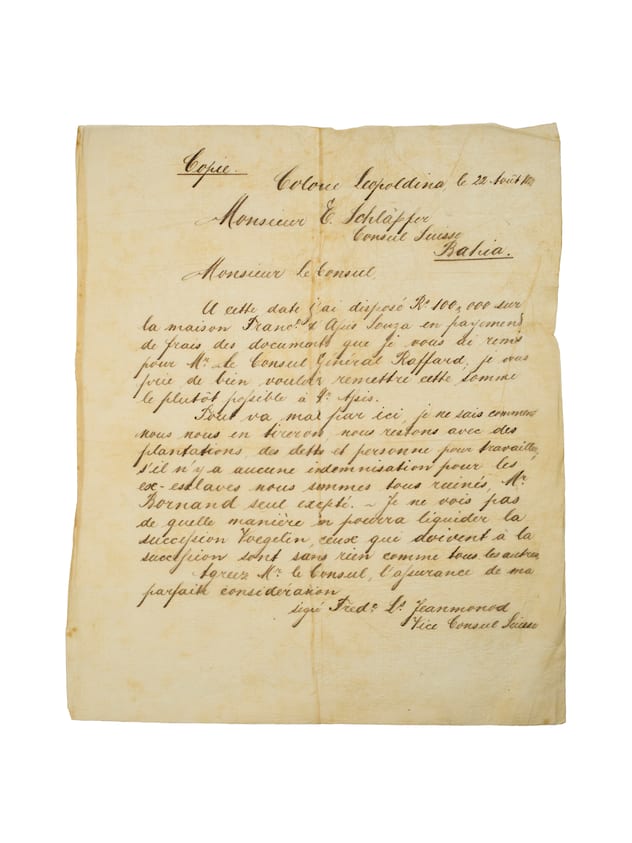 Copie.
Colonie Leopoldina, le 22 Août
Monsieur E. Schläpfer
Consul Suisse
Bahia.
Monsieur le Consul,
A cette date j'ai disposé Rs 100,000 sur
la maison Franco & Apis Souza en payement
de frais des documents que je vous ai remis
pour Mr. le Consul Général Raffard, je vous
prie de bien vouloir remettre cette somme
le plutôt possible à Apis.
Tout va mal par ici, je ne sais comment
nous nous en tireron, nous restons avec des
plantations, des detts et personne pour travailler,
s'il n'y a aucune indemnisation pour les
ex-esclaves nous sommes tous ruinés, Mr
Bornand seul excepté. - Je ne vois pas
de quelle manière on pourra liquider la
succession Voegelin, ceux que doivent à la
succession sont sans rien comme tous les autres.
Agreez Mr. le Consul, l'assurance de ma
parfaite considération
signé Fredc. Ls. Jeanmonod
Vice Consul Suisse